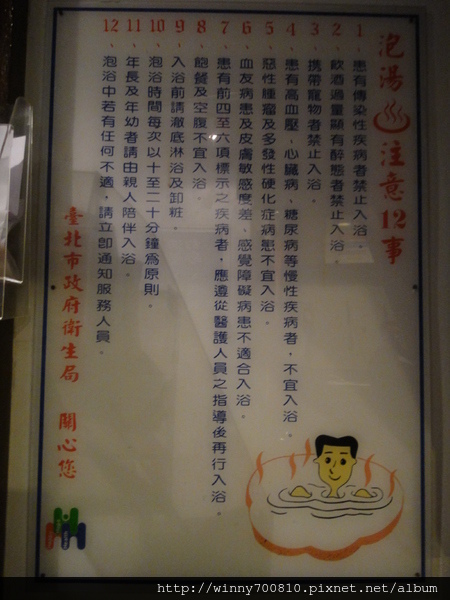 泡湯♨注意12事
1、患有傳染性疾病者禁止入浴。
2、飲酒過量顯有醉態者禁止入浴。
3、攜帶寵物者禁止入浴。
4、患有高血壓、心臟病、糖尿病等慢性疾病者，不宜入浴。
5、惡性腫瘤及多發性硬化症病患不宜入浴。
6、血友病患及皮膚敏感度差、感覺障礙病患不適合入浴。
7、患有前四至六項標示之疾病者，應遵從醫護人員之指導後再行入浴。
8、飽餐及空腹不宜入浴。
9、入浴前請澈底淋浴及卸粧。
10、泡浴時間每次以十至二十分鐘為原則。
11、年長及年幼者請由親人陪伴入浴。
12、泡浴中若有任何不適，請立卽通知服務人員。
臺北市政府衛生局 關心您
http://winny700810.pixnet.net/album